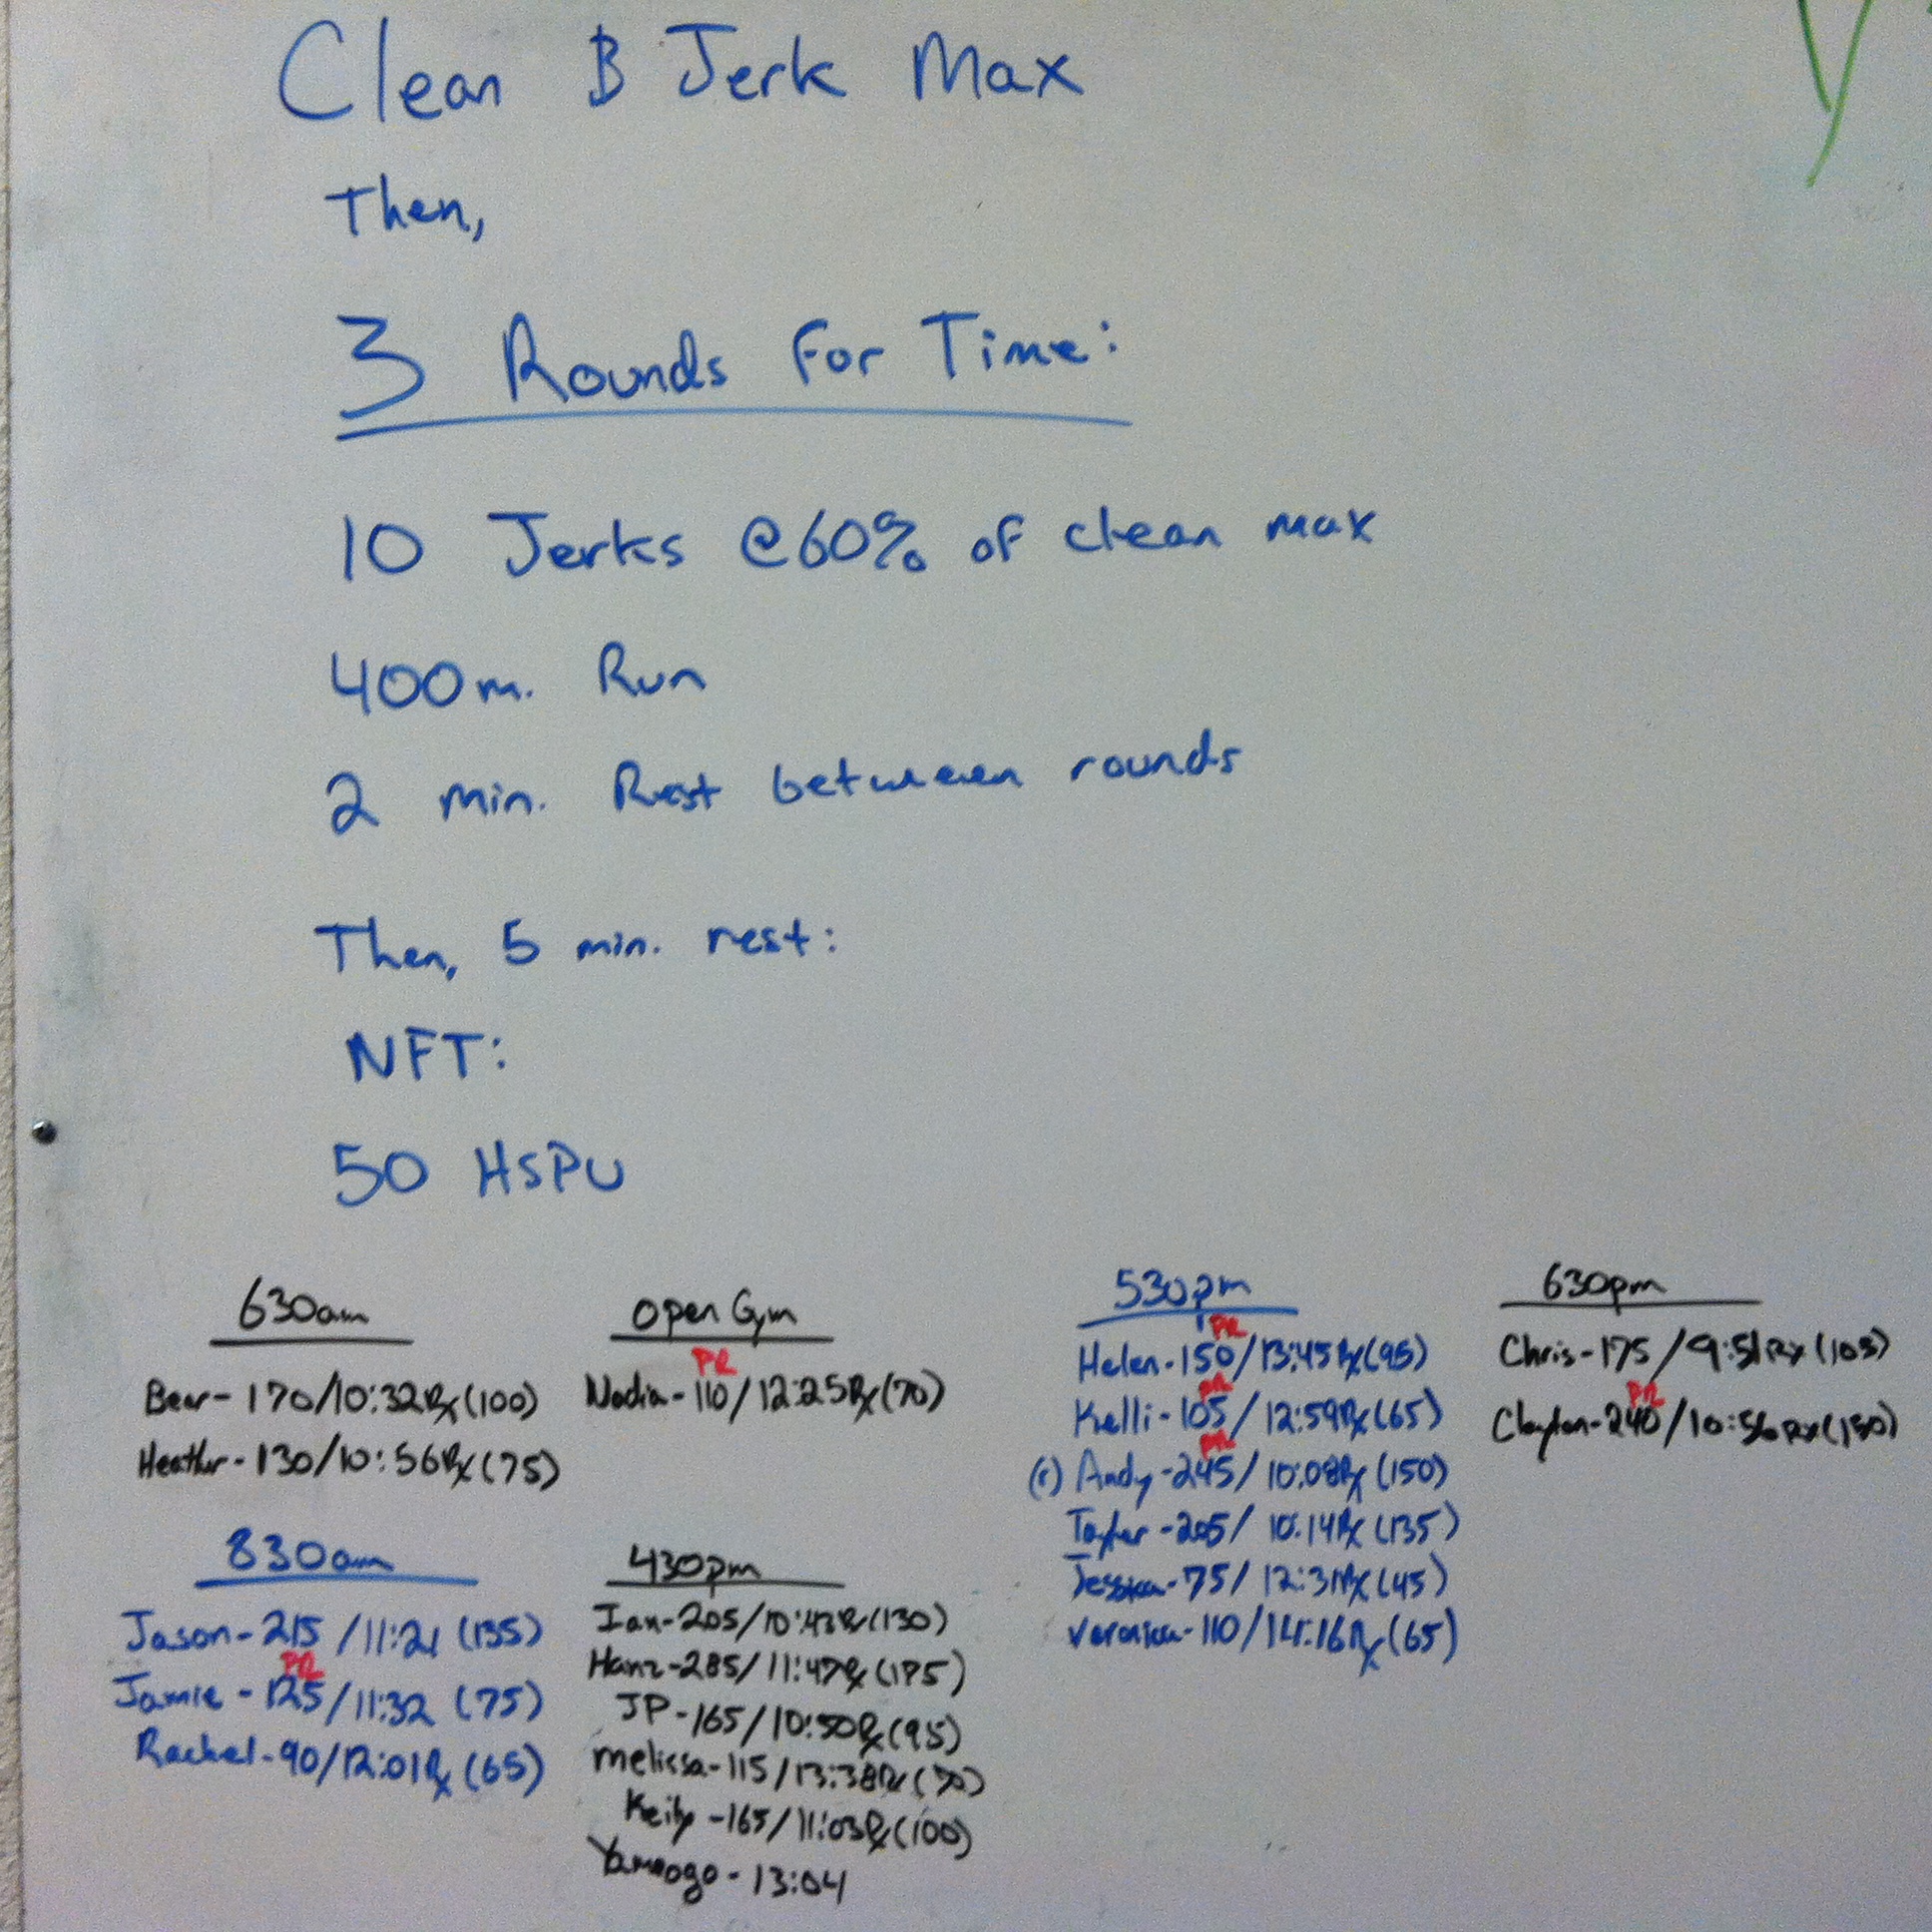 Clean & Jerk Max
Then,
3 Rounds For Time:
10 Jerks @60% of clean max
400m. Run
2 min. Rest between rounds
Then, 5 min. rest:
NFT:
50 HSPU
630am
Bear - 170/10:32Rx(100)
Heather - 130/10:56Rx(75)
830am
Jason - 215 /11:21 (135)
PR
Jamie - 125/11:32 (75)
Rachel - 90/12:01Rx (65)
Open Gym
PR
Nadia - 110/12:25Rx(70)
430pm
Ian - 205/10:43Rx(130)
Hanz - 285/11:47Rx(175)
JP - 165/10:50Rx(95)
Melissa - 115/13:38Rx(70)
165/11:03Rx(100)
13:04
530pm
PR
Helen - 150/13:45Rx(95)
PR
Kelli - 105/12:59Rx(65)
PR
(c) Andy - 245/10:08Rx(150)
Taylor - 205/10:14Rx(135)
Jessica - 75/12:31Rx(45)
Veronica - 110/14:16Rx(65)
630pm
Chris - 175/9:51Rx(105)
PR
Clayton - 240/10:56Rx(150)